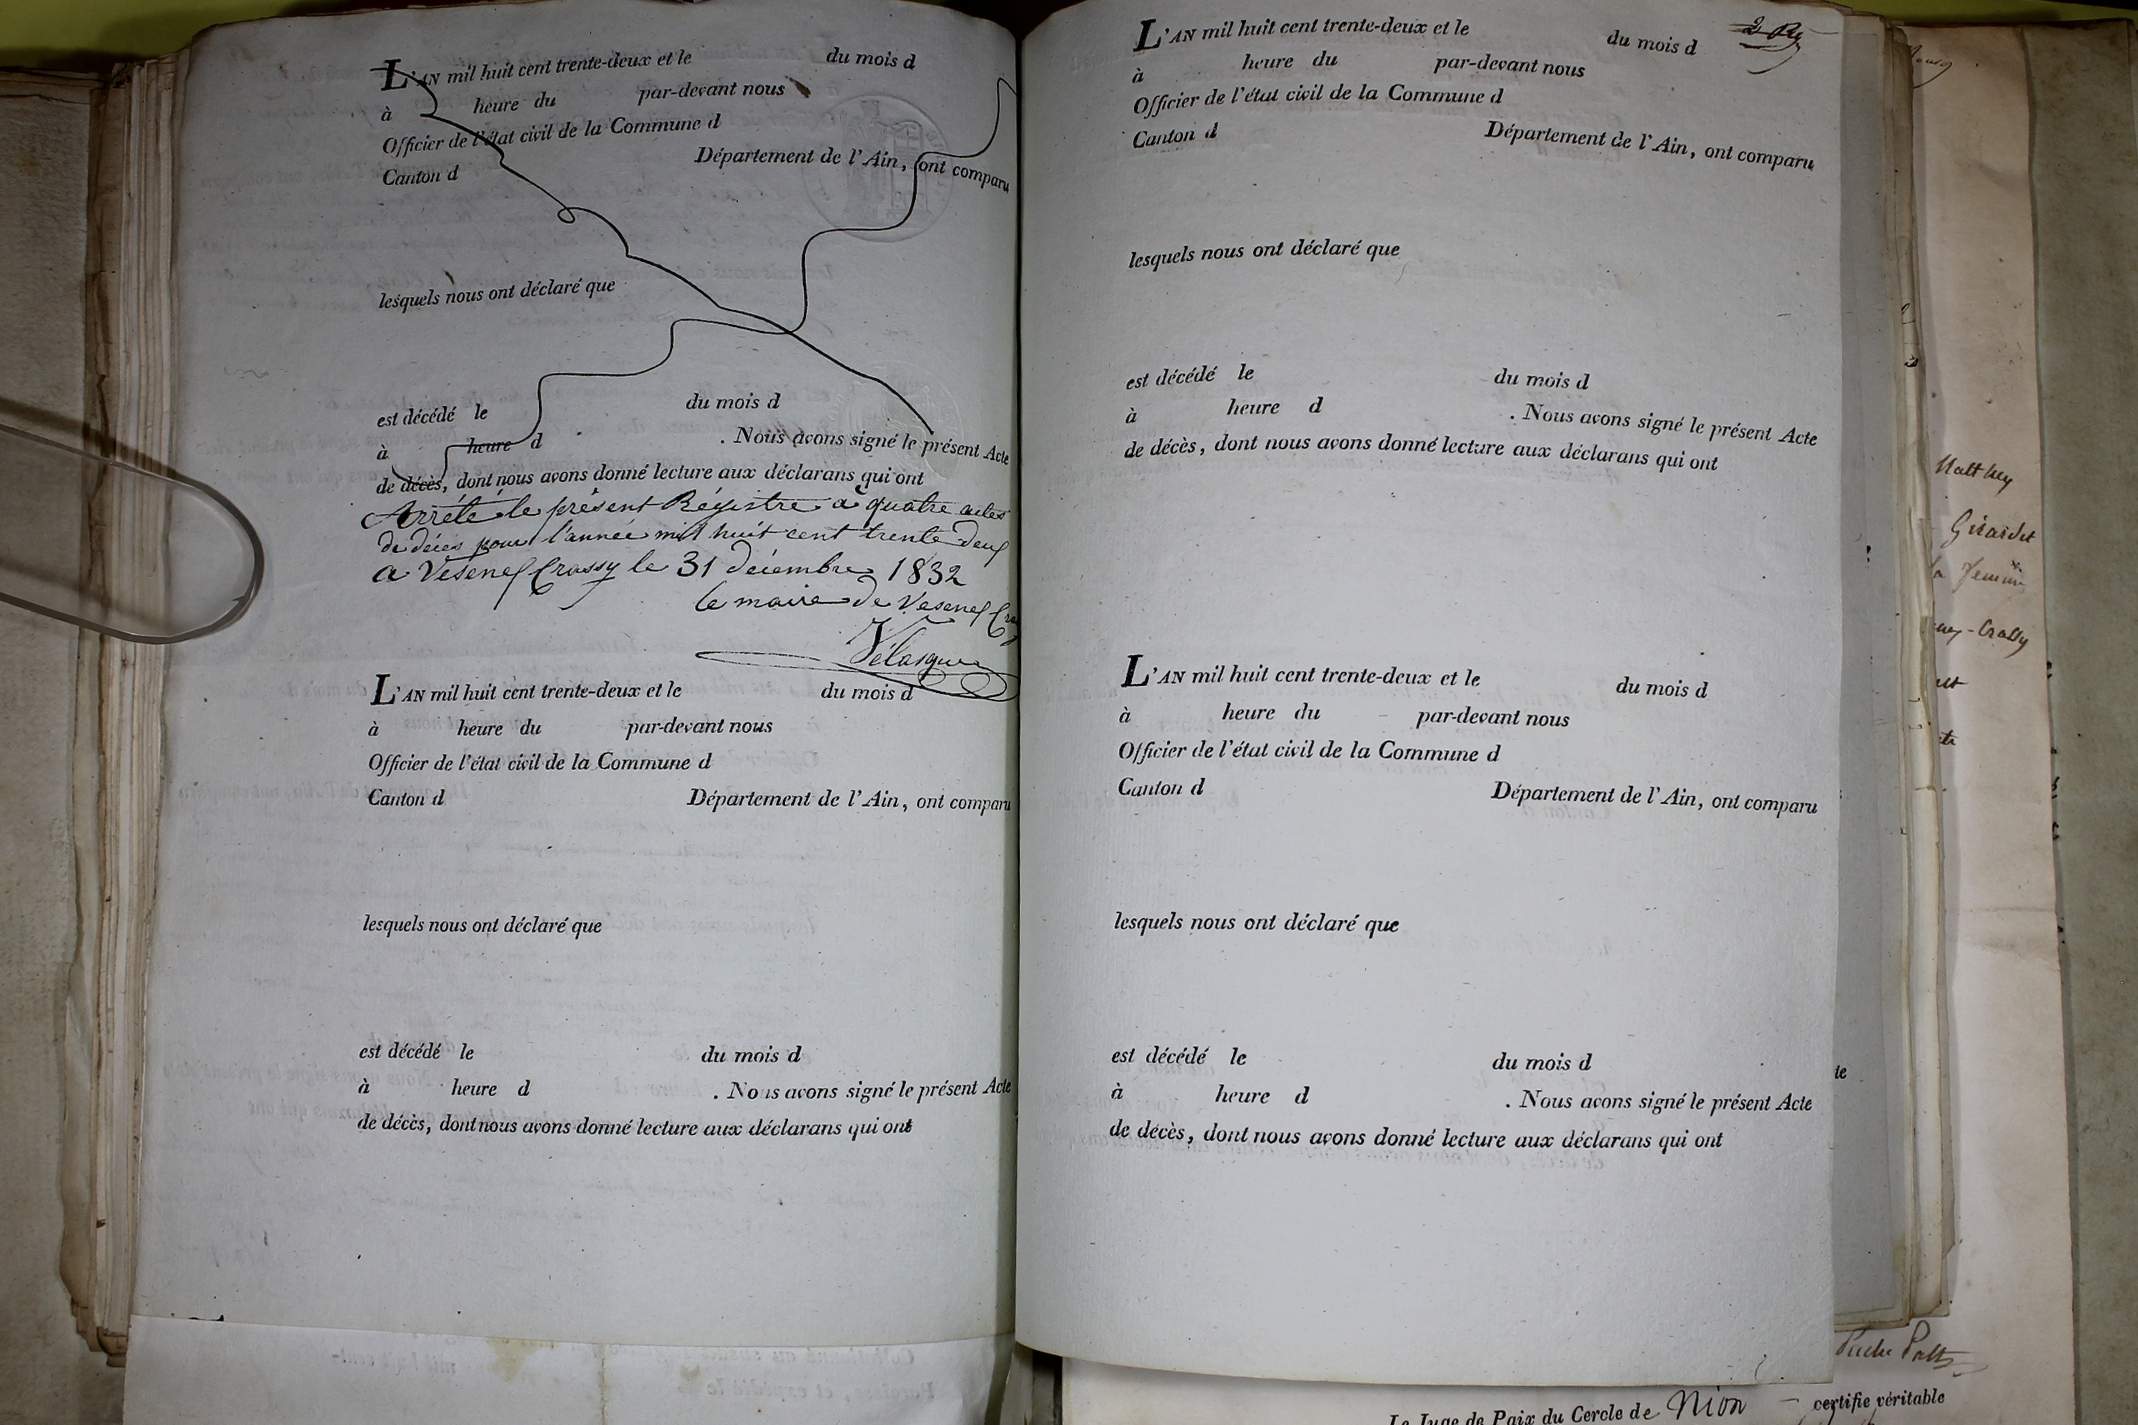 L'AN mil huit cent trente-deux et le du mois d
à heure du par-devant nous
Officier de l'état civil de la Commune d
Canton d Département de l'Ain, ont comparu
lesquels nous ont déclaré que
est décédé le du mois d
à heure d . Nous avons signé le présent Acte
de décès, dont nous avons donné lecture aux déclarans qui ont
Arrété le présent Régistre à quatre actes
de décès pour l'année mil huit cent trente deux
a Vesenex Crassy le 31 décembre 1832
le maire de Vesenex
Vélasque
L'AN mil huit cent trente-deux et le du mois d
à heure du par-devant nous
Officier de l'état civil de la Commune d
Canton d Département de l'Ain, ont comparu
lesquels nous ont déclaré que
est décédé le du mois d
à heure d . Nous avons signé le présent Acte
de décès, dont nous avons donné lecture aux déclarans qui ont
L'AN mil huit cent trente-deux et le du mois d
à heure du par-devant nous
Officier de l'état civil de la Commune d
Canton d Département de l'Ain, ont comparu
lesquels nous ont déclaré que
est décédé le du mois d
à heure d . Nous avons signé le présent Acte
de décès, dont nous avons donné lecture aux déclarans qui ont
L'AN mil huit cent trente-deux et le du mois d
à heure du par-devant nous
Officier de l'état civil de la Commune d
Canton d Département de l'Ain, ont comparu
lesquels nous ont déclaré que
est décédé le du mois d
à heure d . Nous avons signé le présent Acte
de décès, dont nous avons donné lecture aux déclarans qui ont
Matthey
Girardet
femme
Crassy
te
Le Juge de Paix du Cercle de Nion certifie véritable